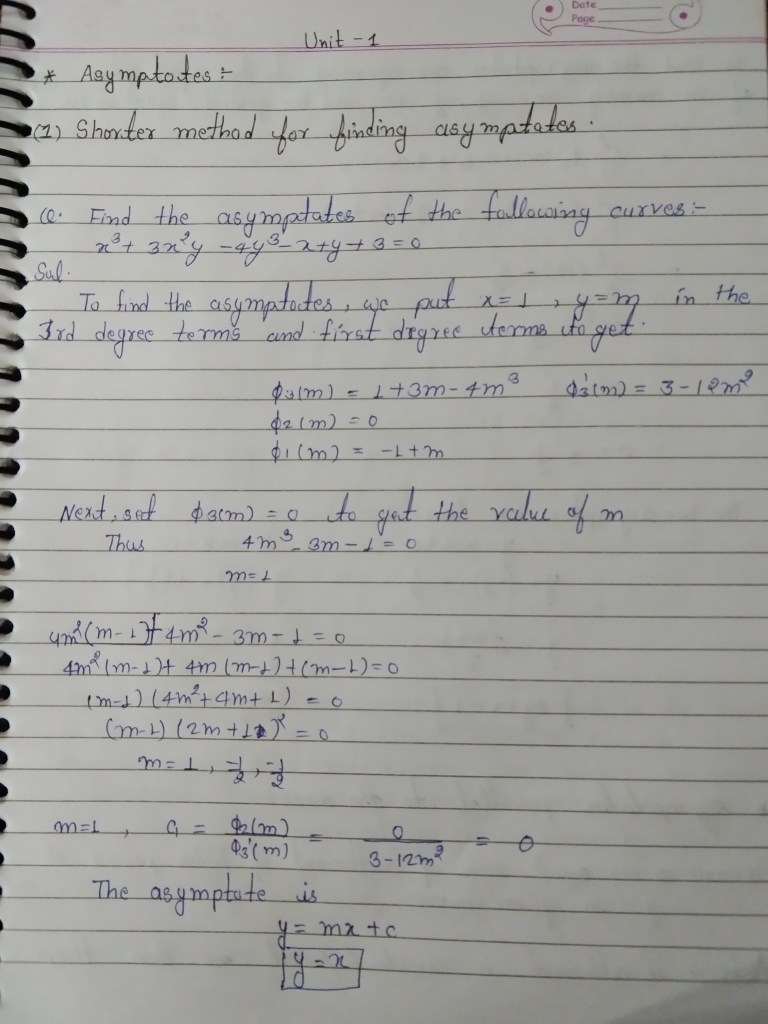 Date
Page
Unit - 1
* Asymptotes :-
(1) Shorter method for finding asymptotes.
Q. Find the asymptates of the following curves:-
x³ + 3x²y - 4y³ - x + y + 3 = 0
Sol.
To find the asymptotes, we put x = 1, y = m in the
3rd degree terms and first degree terms to get.
ϕ₃(m) = 1 + 3m - 4m³ ϕ₃'(m) = 3 - 12m²
ϕ₂(m) = 0
ϕ₁(m) = -1 + m
Next, set ϕ₃(m) = 0 to get the value of m
Thus 4m³ - 3m - 1 = 0
m = 1
4m²(m-1) + 4m² - 3m - 1 = 0
4m²(m-1) + 4m(m-1) + (m-1) = 0
(m-1)(4m² + 4m + 1) = 0
(m-1)(2m+1)² = 0
m = 1, -1/2, -1/2
m=1, C₁ = ϕ₂(m)/ϕ₃'(m) = 0/(3-12m²) = 0
The asymptote is
y = mx + c
y = x